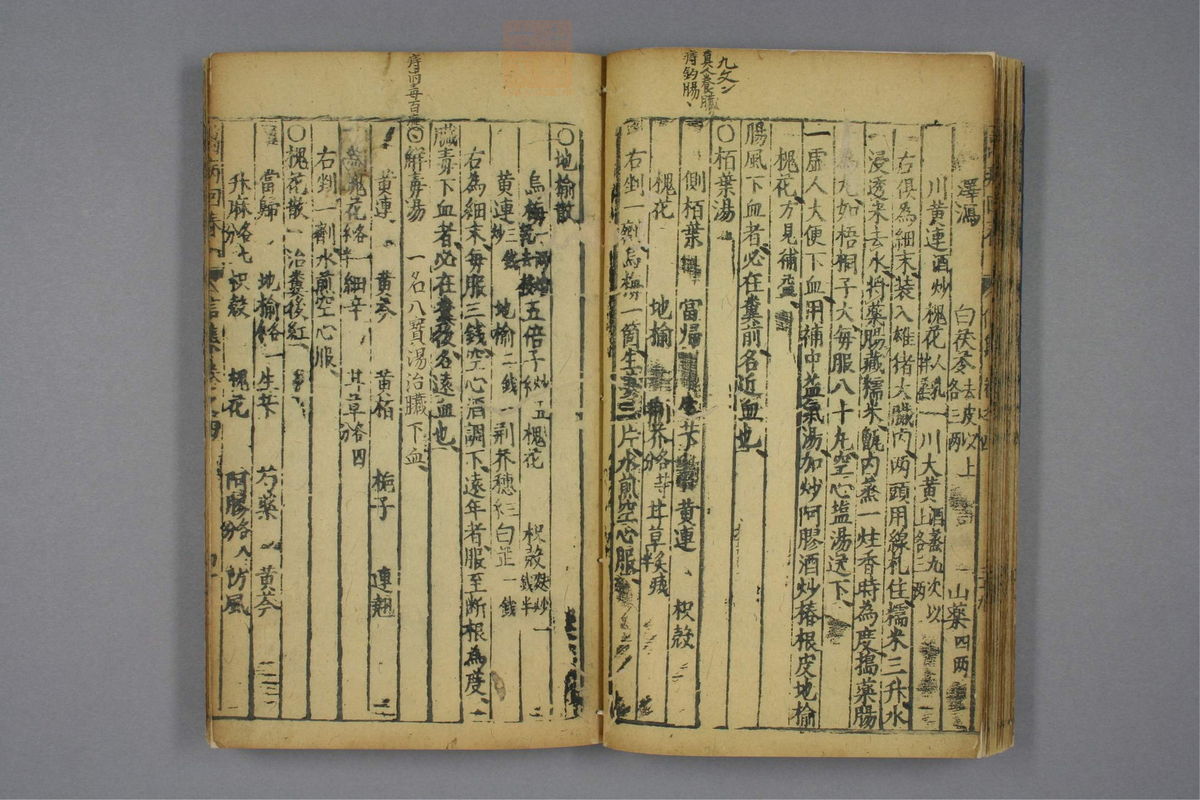 澤瀉 白茯苓去皮以上各三兩 山藥四兩
川黃連酒炒 槐花人乳 一 川大黃酒蒸九次以上各三兩
右俱為細末裝入雄猪大臟內兩頭用線札住糯米三升水
浸透來去水將藥腸藏糯米甑內蒸一炷香時為度搗藥腸
為丸如梧桐子大每服八十丸空心塩湯送下
一虛人大便下血用補中益氣湯加炒阿膠酒炒椿根皮地榆
槐花方見補益
腸風下血者必在糞前名近血也
〇栢葉湯
側栢葉 當歸 生芐 黃連 枳殼
槐花 地榆 荊芥各等分 甘草炙減半
右剉一劑烏梅一箇生姜三片水煎空心服
九丈
真人養臟
痔釣腸
〇地榆散
烏梅一兩 五倍子炒五 槐花 枳殼麩炒一錢半
黃連炒三錢 地榆二錢 荊芥穗三 白芷一錢
右為細末每服三錢空心酒調下遠年者服至斷根為度
臟毒下血者必在糞後名遠血也
〇解毒湯 一名八寶湯治臟下血
黃連 黃芩 黃栢 梔子 連翹
槐花各一 細辛 甘草各四分
右剉一劑水煎空心服
〇槐花散 治糞後紅
當歸 地榆各一 生芐 芍藥 黃芩
升麻各七分 枳殼 槐花 阿膠各八分 防風